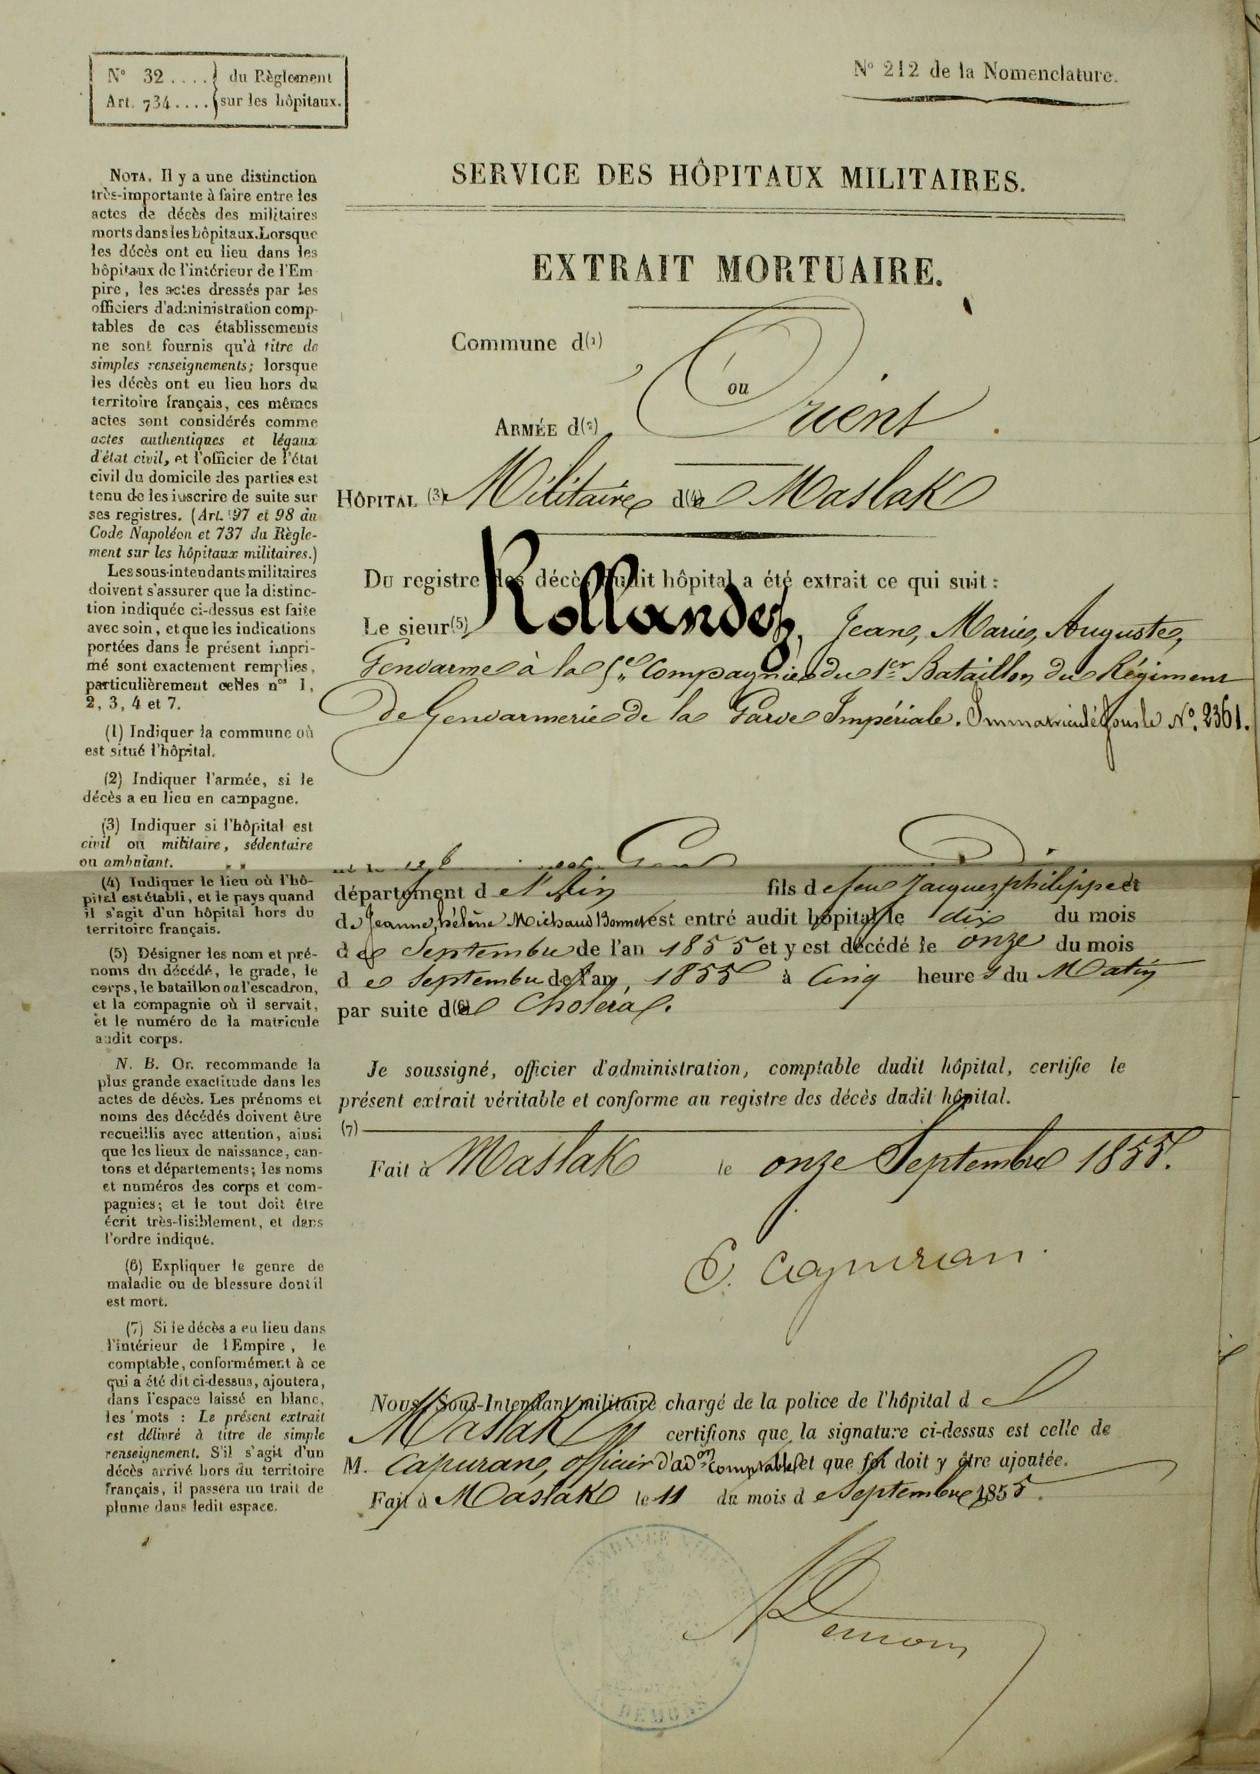 N° 32 .... du Règlement
Art. 734 .... sur les hôpitaux.
N° 212 de la Nomenclature.
NOTA. Il y a une distinction
très-importante à faire entre les
actes de décès des militaires
morts dans les hôpitaux. Lorsque
les décès ont eu lieu dans les
hôpitaux de l'intérieur de l'Em
pire, les actes dressés par les
officiers d'administration comp-
tables de ces établissements
ne sont fournis qu'à titre de
simples renseignements; lorsque
les décès ont eu lieu hors du
territoire français, ces mêmes
actes sont considérés comme
actes authentiques et légaux
d'état civil, et l'officier de l'état
civil du domicile des parties est
tenu de les inscrire de suite sur
ses registres. (Art. 97 et 98 du
Code Napoléon et 737 du Règle-
ment sur les hôpitaux militaires.)
Les sous-intendants militaires
doivent s'assurer que la distinc-
tion indiquée ci-dessus est faite
avec soin, et que les indications
portées dans le présent impri-
mé sont exactement remplies,
particulièrement celles nos 1,
2, 3, 4 et 7.
(1) Indiquer la commune où
est situé l'hôpital.
(2) Indiquer l'armée, si le
décès a eu lieu en campagne.
(3) Indiquer si l'hôpital est
civil ou militaire, sédentaire
ou ambulant.
(4) Indiquer le lieu où l'hô-
pital est établi, et le pays quand
il s'agit d'un hôpital hors du
territoire français.
(5) Désigner les nom et pré-
noms du décédé, le grade, le
corps, le bataillon ou l'escadron,
et la compagnie où il servait,
et le numéro de la matricule
audit corps.
N. B. On recommande la
plus grande exactitude dans les
actes de décès. Les prénoms et
noms des décédés doivent être
recueillis avec attention, ainsi
que les lieux de naissance, can-
tons et départements; les noms
et numéros des corps et com-
pagnies; et le tout doit être
écrit très-lisiblement, et dans
l'ordre indiqué.
(6) Expliquer le genre de
maladie ou de blessure dont il
est mort.
(7) Si le décès a eu lieu dans
l'intérieur de l'Empire, le
comptable, conformément à ce
qui a été dit ci-dessus, ajoutera,
dans l'espace laissé en blanc,
les mots : Le présent extrait
est délivré à titre de simple
renseignement. S'il s'agit d'un
décès arrivé hors du territoire
français, il passera un trait de
plume dans ledit espace.
SERVICE DES HÔPITAUX MILITAIRES.
EXTRAIT MORTUAIRE.
Commune d(1)
ou
ARMÉE d(2) Orient
HÔPITAL (3) Militaire d(4)e Maslak
Du registre des décès dudit hôpital a été extrait ce qui suit :
Le sieur(5) Rollandez, Jean, Marie, Auguste,
Gendarme à la 5e Compagnie du 1er Bataillon du Régiment
de Gendarmerie de la Garde Impériale. Immatriculé sous le N°. 2361.
département de l'Ain fils de feu Jacques philippe et
de Jeanne hélène Michaud Bonnet est entré audit hôpital le dix du mois
de Septembre de l'an 1855 et y est décédé le onze du mois
de Septembre de l'an 1855 à Cinq heures du Matin
par suite d(6)e Choléra.
Je soussigné, officier d'administration, comptable dudit hôpital, certifie le
présent extrait véritable et conforme au registre des décès dudit hôpital.
(7)
Fait à Maslak le onze Septembre 1855.
C. Capuran
Nous, Sous-Intendant militaire chargé de la police de l'hôpital de
Maslak certifions que la signature ci-dessus est celle de
M. Capuran, officier d'adon comptable et que foi doit y être ajoutée.
Fait à Maslak le 11 du mois de Septembre 1855.
Demons
INTENDANCE MILITAIRE
DEMONS